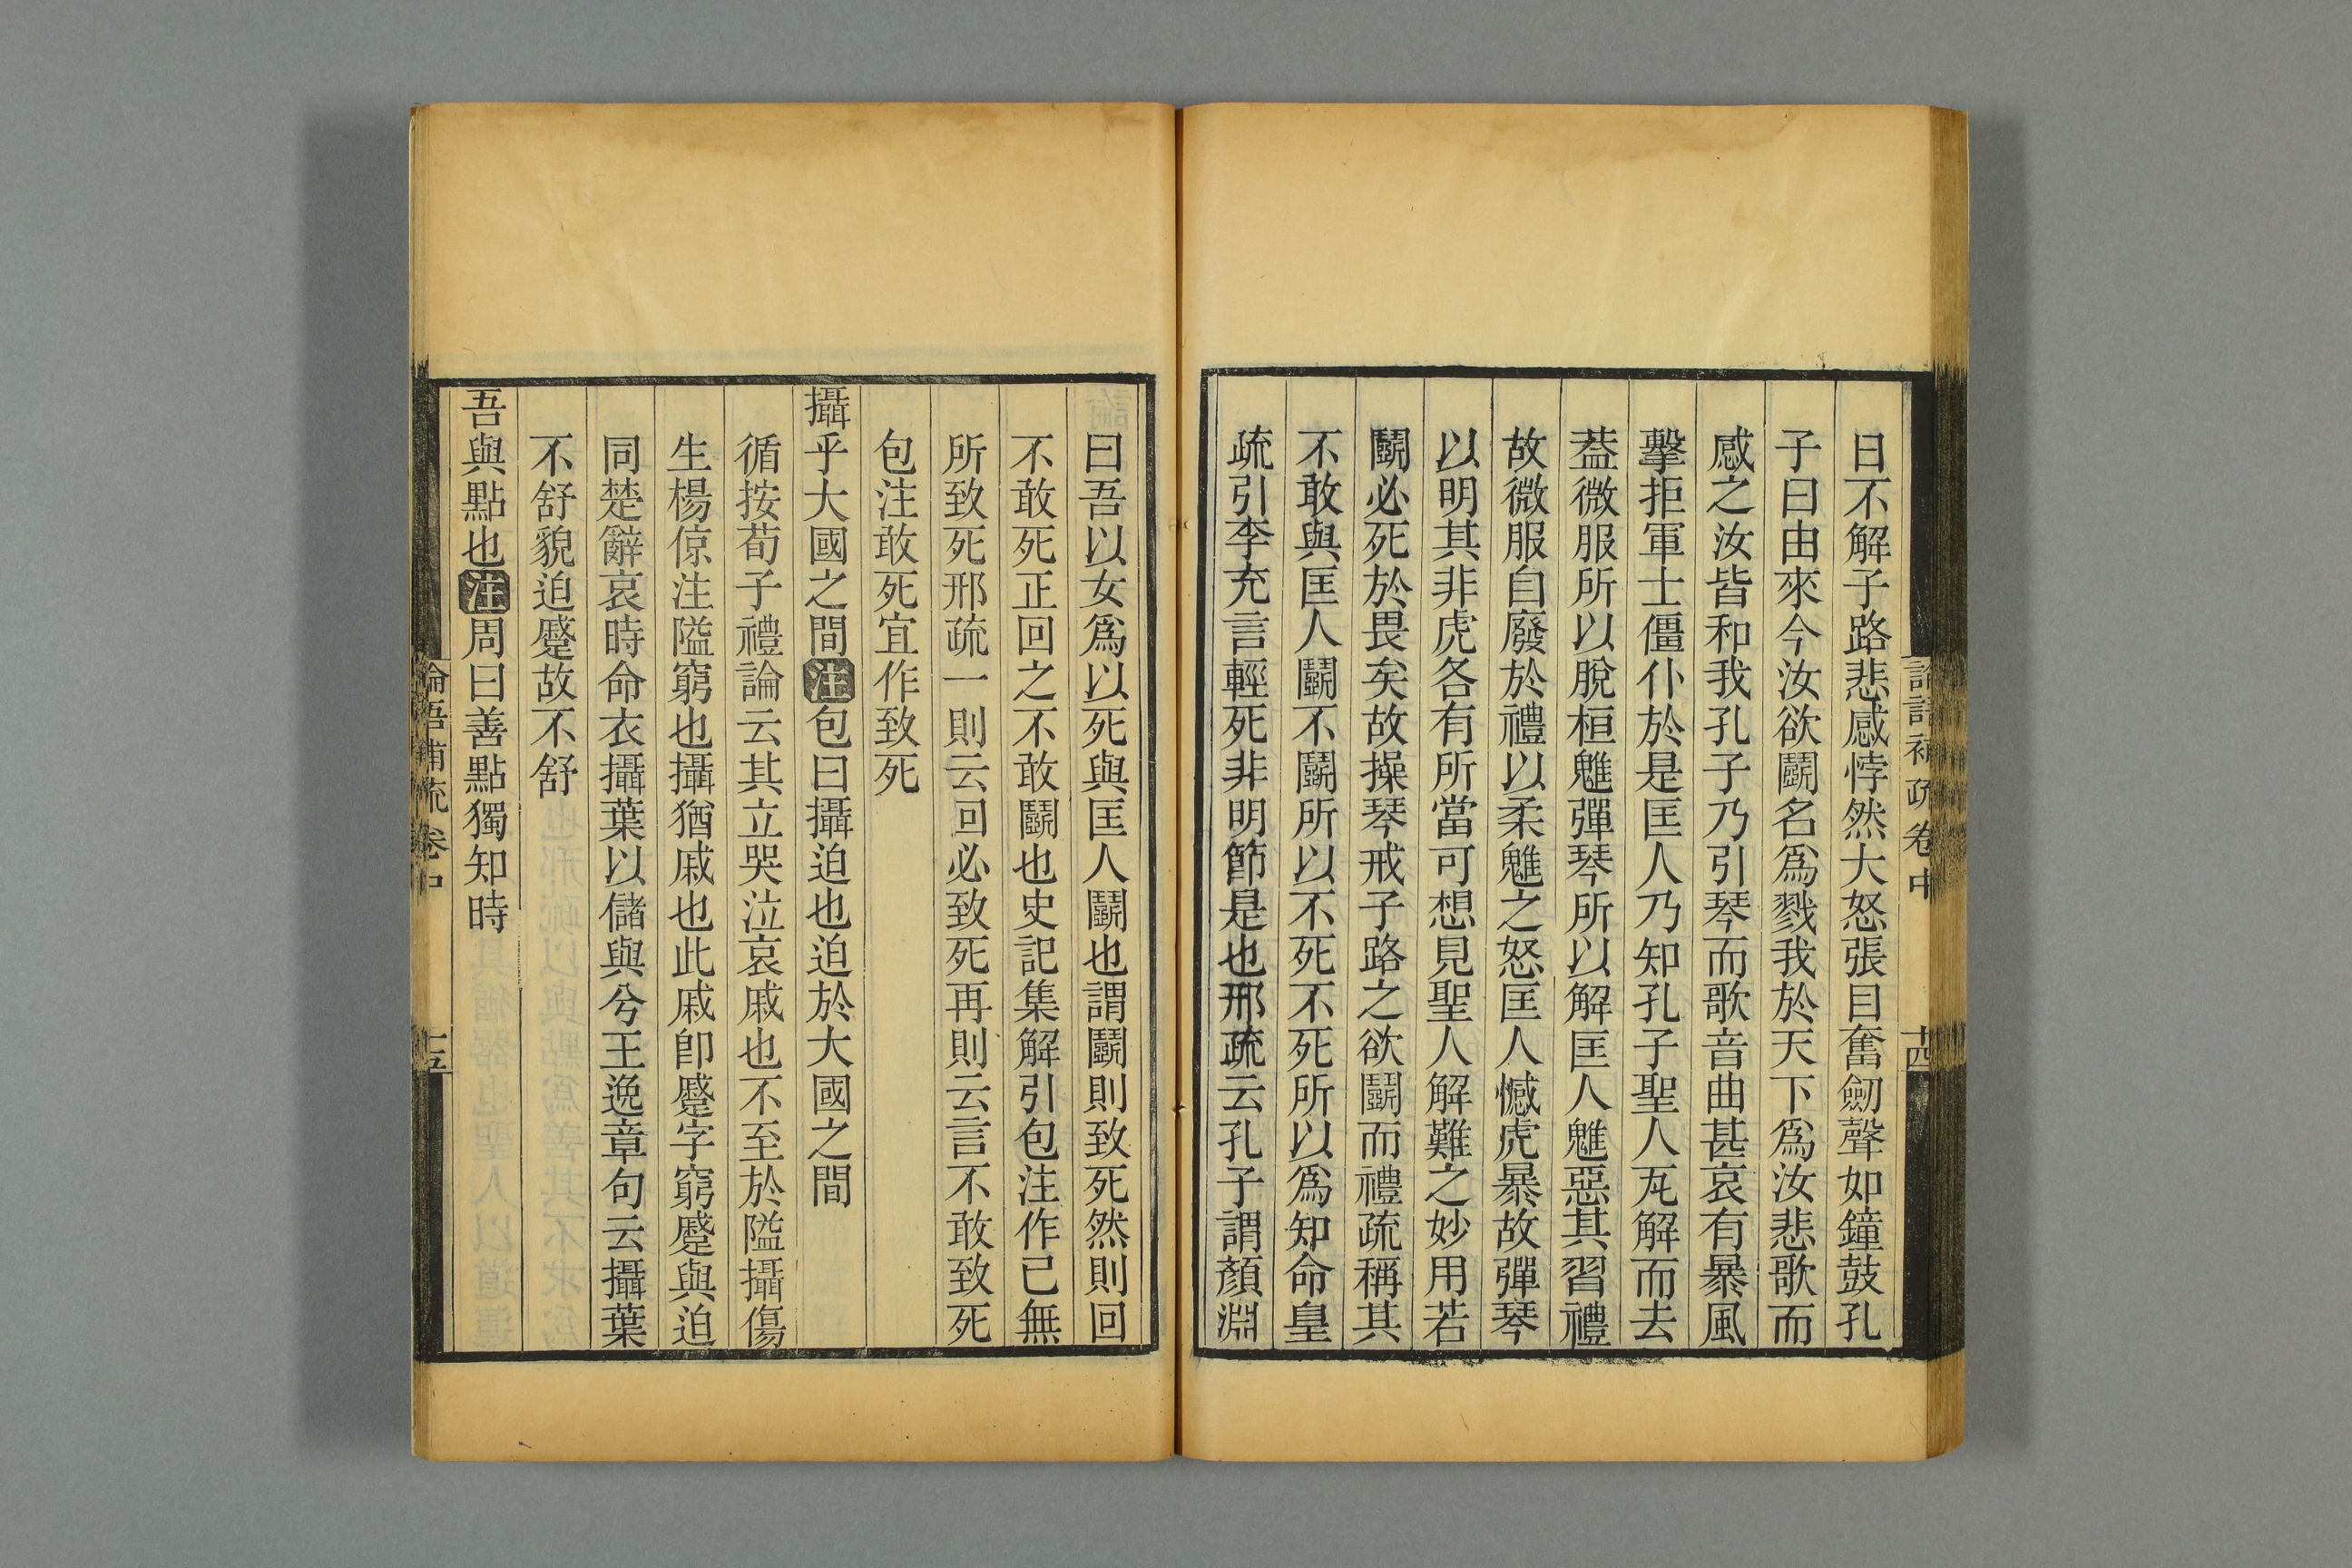 日不解子路悲感悖然大怒張目奮劒聲如鐘鼓孔
子曰由來今汝欲鬭名爲戮我於天下爲汝悲歌而
感之汝皆和我孔子乃引琴而歌音曲甚哀有暴風
擊拒軍士僵仆於是匡人乃知孔子聖人瓦解而去
葢微服所以脫桓魋彈琴所以解匡人魋惡其習禮
故微服自廢於禮以柔魋之怒匡人憾虎暴故彈琴
以明其非虎各有所當可想見聖人解難之妙用若
鬭必死於畏矣故操琴戒子路之欲鬭而禮疏稱其
不敢與匡人鬭不鬭所以不死不死所以爲知命皇
疏引李充言輕死非明節是也邢疏云孔子謂顏淵
論語補疏卷中
十四
曰吾以女爲以死與匡人鬭也謂鬭則致死然則回
不敢死正回之不敢鬭也史記集解引包注作已無
所致死邢疏一則云回必致死再則云言不敢致死
包注敢死宜作致死
攝乎大國之間注包曰攝迫也迫於大國之間
循按荀子禮論云其立哭泣哀戚也不至於隘攝傷
生楊倞注隘窮也攝猶戚也此戚卽蹙字窮蹙與迫
同楚辭哀時命衣攝葉以儲與兮王逸章句云攝葉
不舒貌迫蹙故不舒
吾與點也注周曰善點獨知時
論語補疏卷中
十五